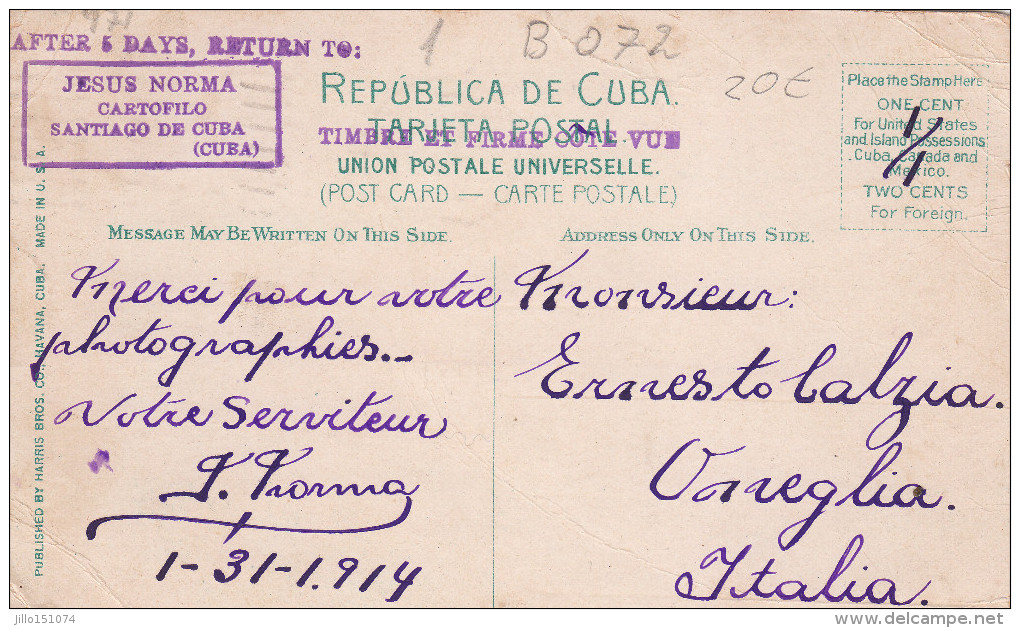 AFTER 5 DAYS, RETURN TO:
JESUS NORMA
CARTOFILO
SANTIAGO DE CUBA
(CUBA)
1
B 072
20€
REPÚBLICA DE CUBA.
TARJETA POSTAL.
TIMBRE ET FIRME COTE VUE
UNION POSTALE UNIVERSELLE.
(POST CARD — CARTE POSTALE)
Place the Stamp Here
ONE CENT
For United States
and Island Possessions
Cuba, Canada and
Mexico.
TWO CENTS
For Foreign.
1/1
MESSAGE MAY BE WRITTEN ON THIS SIDE.
ADDRESS ONLY ON THIS SIDE.
Merci pour votre
photographies._
Votre Serviteur
J. Norma
1-31-1.914
Monsieur:
Ernesto Calzia.
Oneglia.
Italia.
PUBLISHED BY HARRIS BROS. CO., HAVANA, CUBA. MADE IN U. S. A.
jillo151074
www.delcampe.net